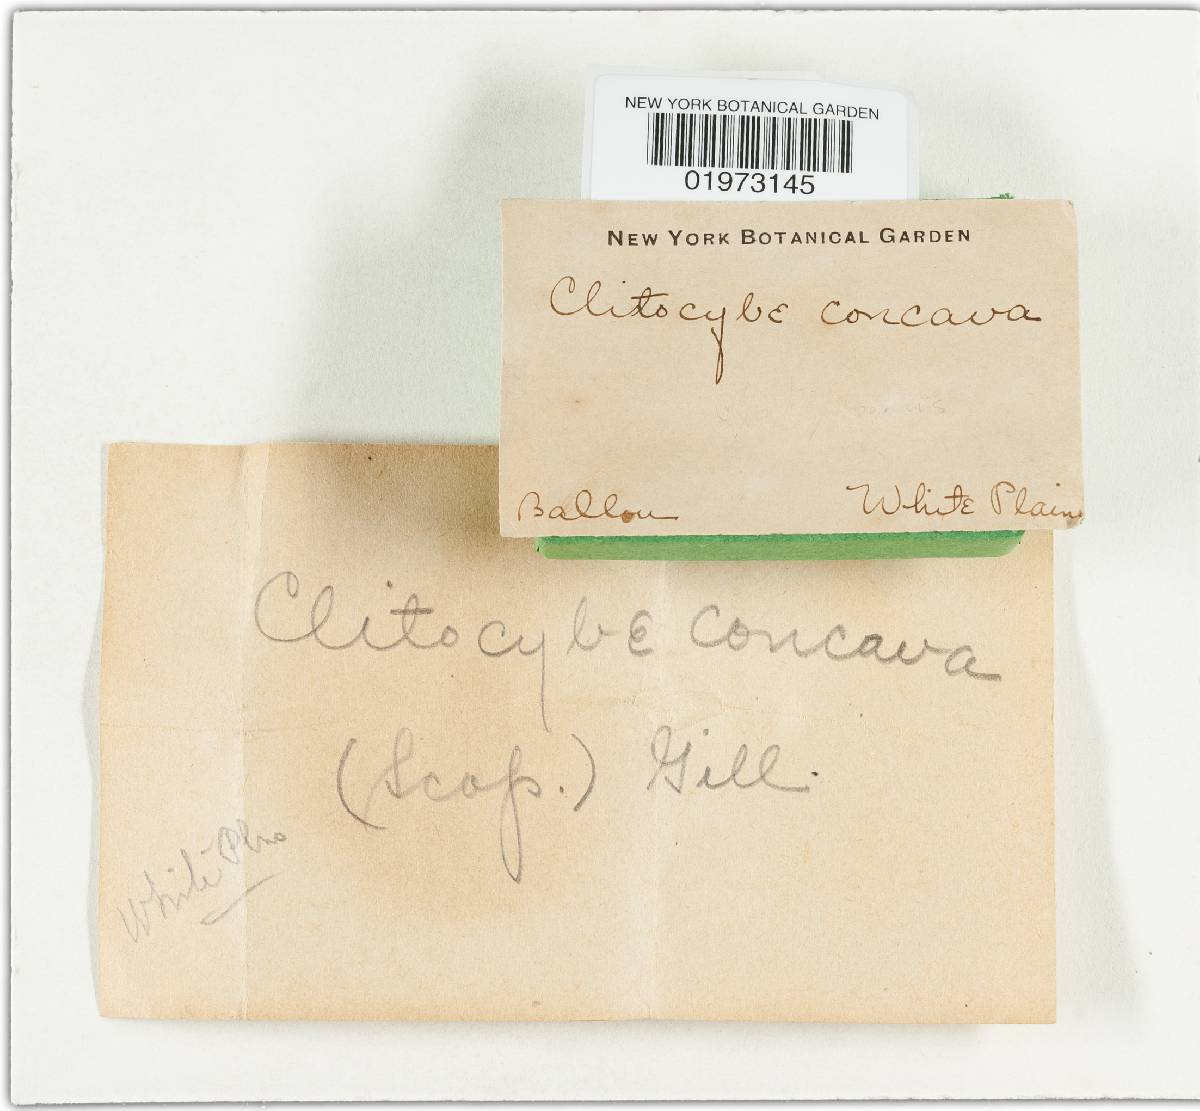 NEW YORK BOTANICAL GARDEN
01973145
NEW YORK BOTANICAL GARDEN
Clitocybe concava
Ballou White Plain
Clitocybe concava
(Scop.) Gill.
White Plns